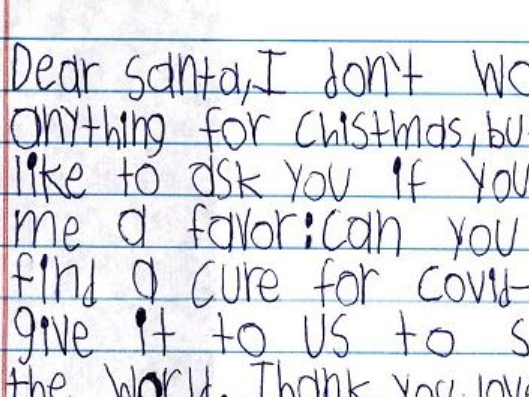 Dear santa, I don't wo
anything for chistmas, bu
like to ask you if you
me a favor: can you
find a cure for covid-
give it to us to s
the world. Thank you, love